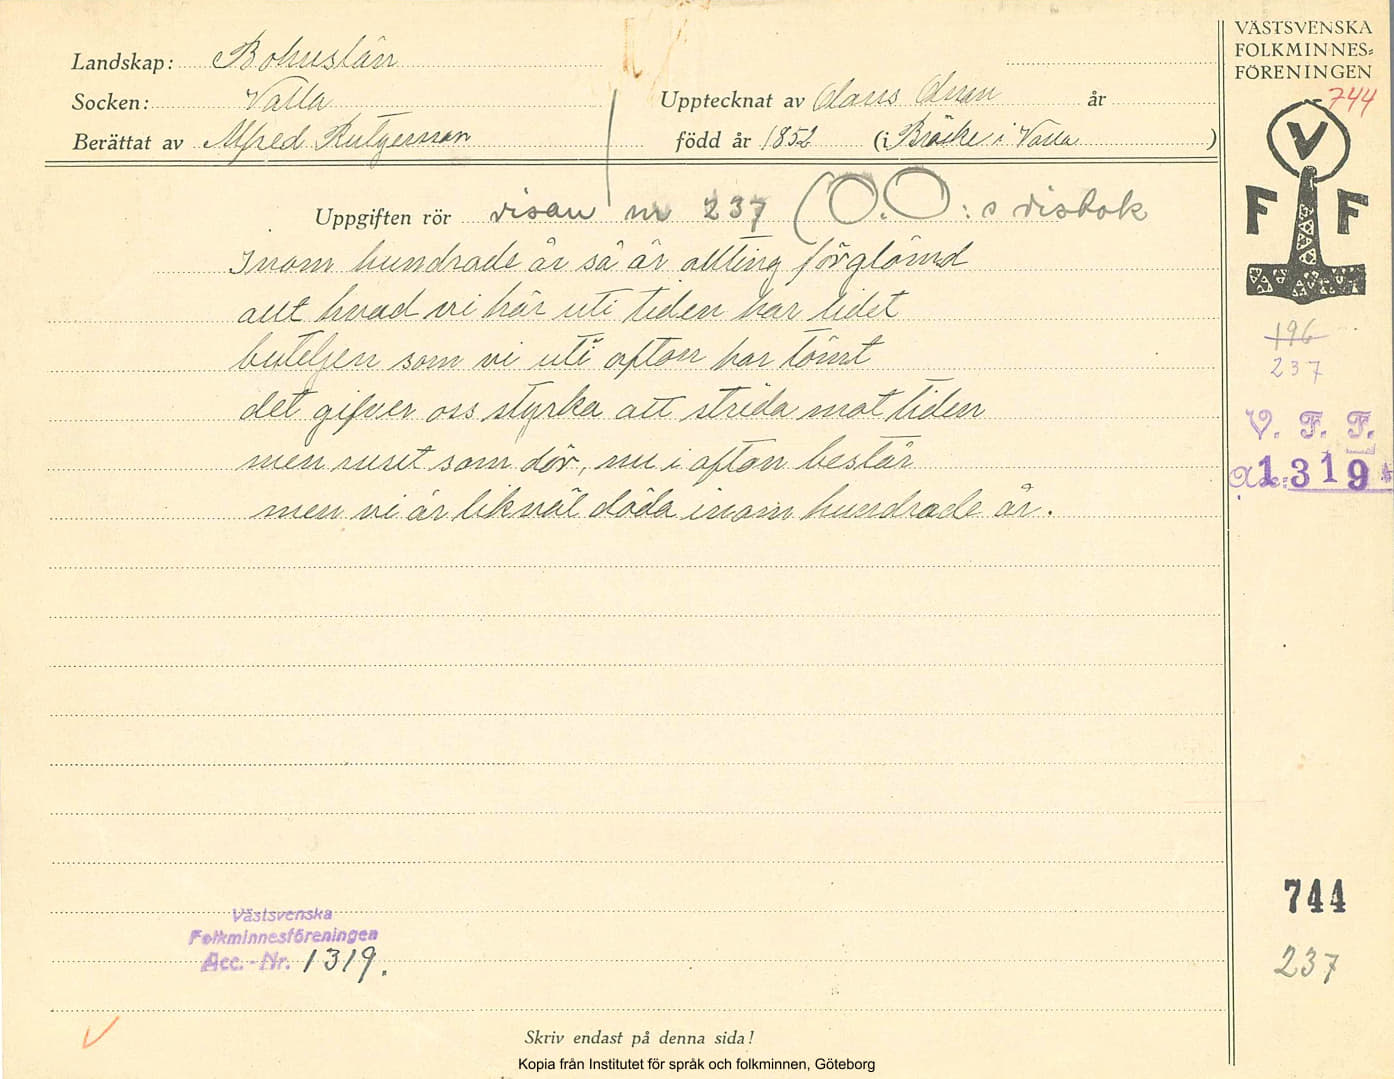 VÄSTSVENSKA
FOLKMINNES=
FÖRENINGEN
744
Landskap: Bohuslän
Socken: Valla
Upptecknat av Olaus Olsson år
Berättat av Alfred Rutgersson
född år 1852 (i Bräcke i Valla )
V
F F
Uppgiften rör visan nr 237 (O.O:s visbok
Inom hundrade år så är allting förglömd
allt hvad vi här uti tiden har lidet
buteljen som vi uti afton har tömt
det gifver oss styrka att strida mot tiden
men ruset som dör, nu i afton består
men vi är likväl döda inom hundrade år.
196
237
V. F. F.
1319
Västsvenska
Folkminnesföreningen
Acc.-Nr. 1319.
744
237
Skriv endast på denna sida!
Kopia från Institutet för språk och folkminnen, Göteborg